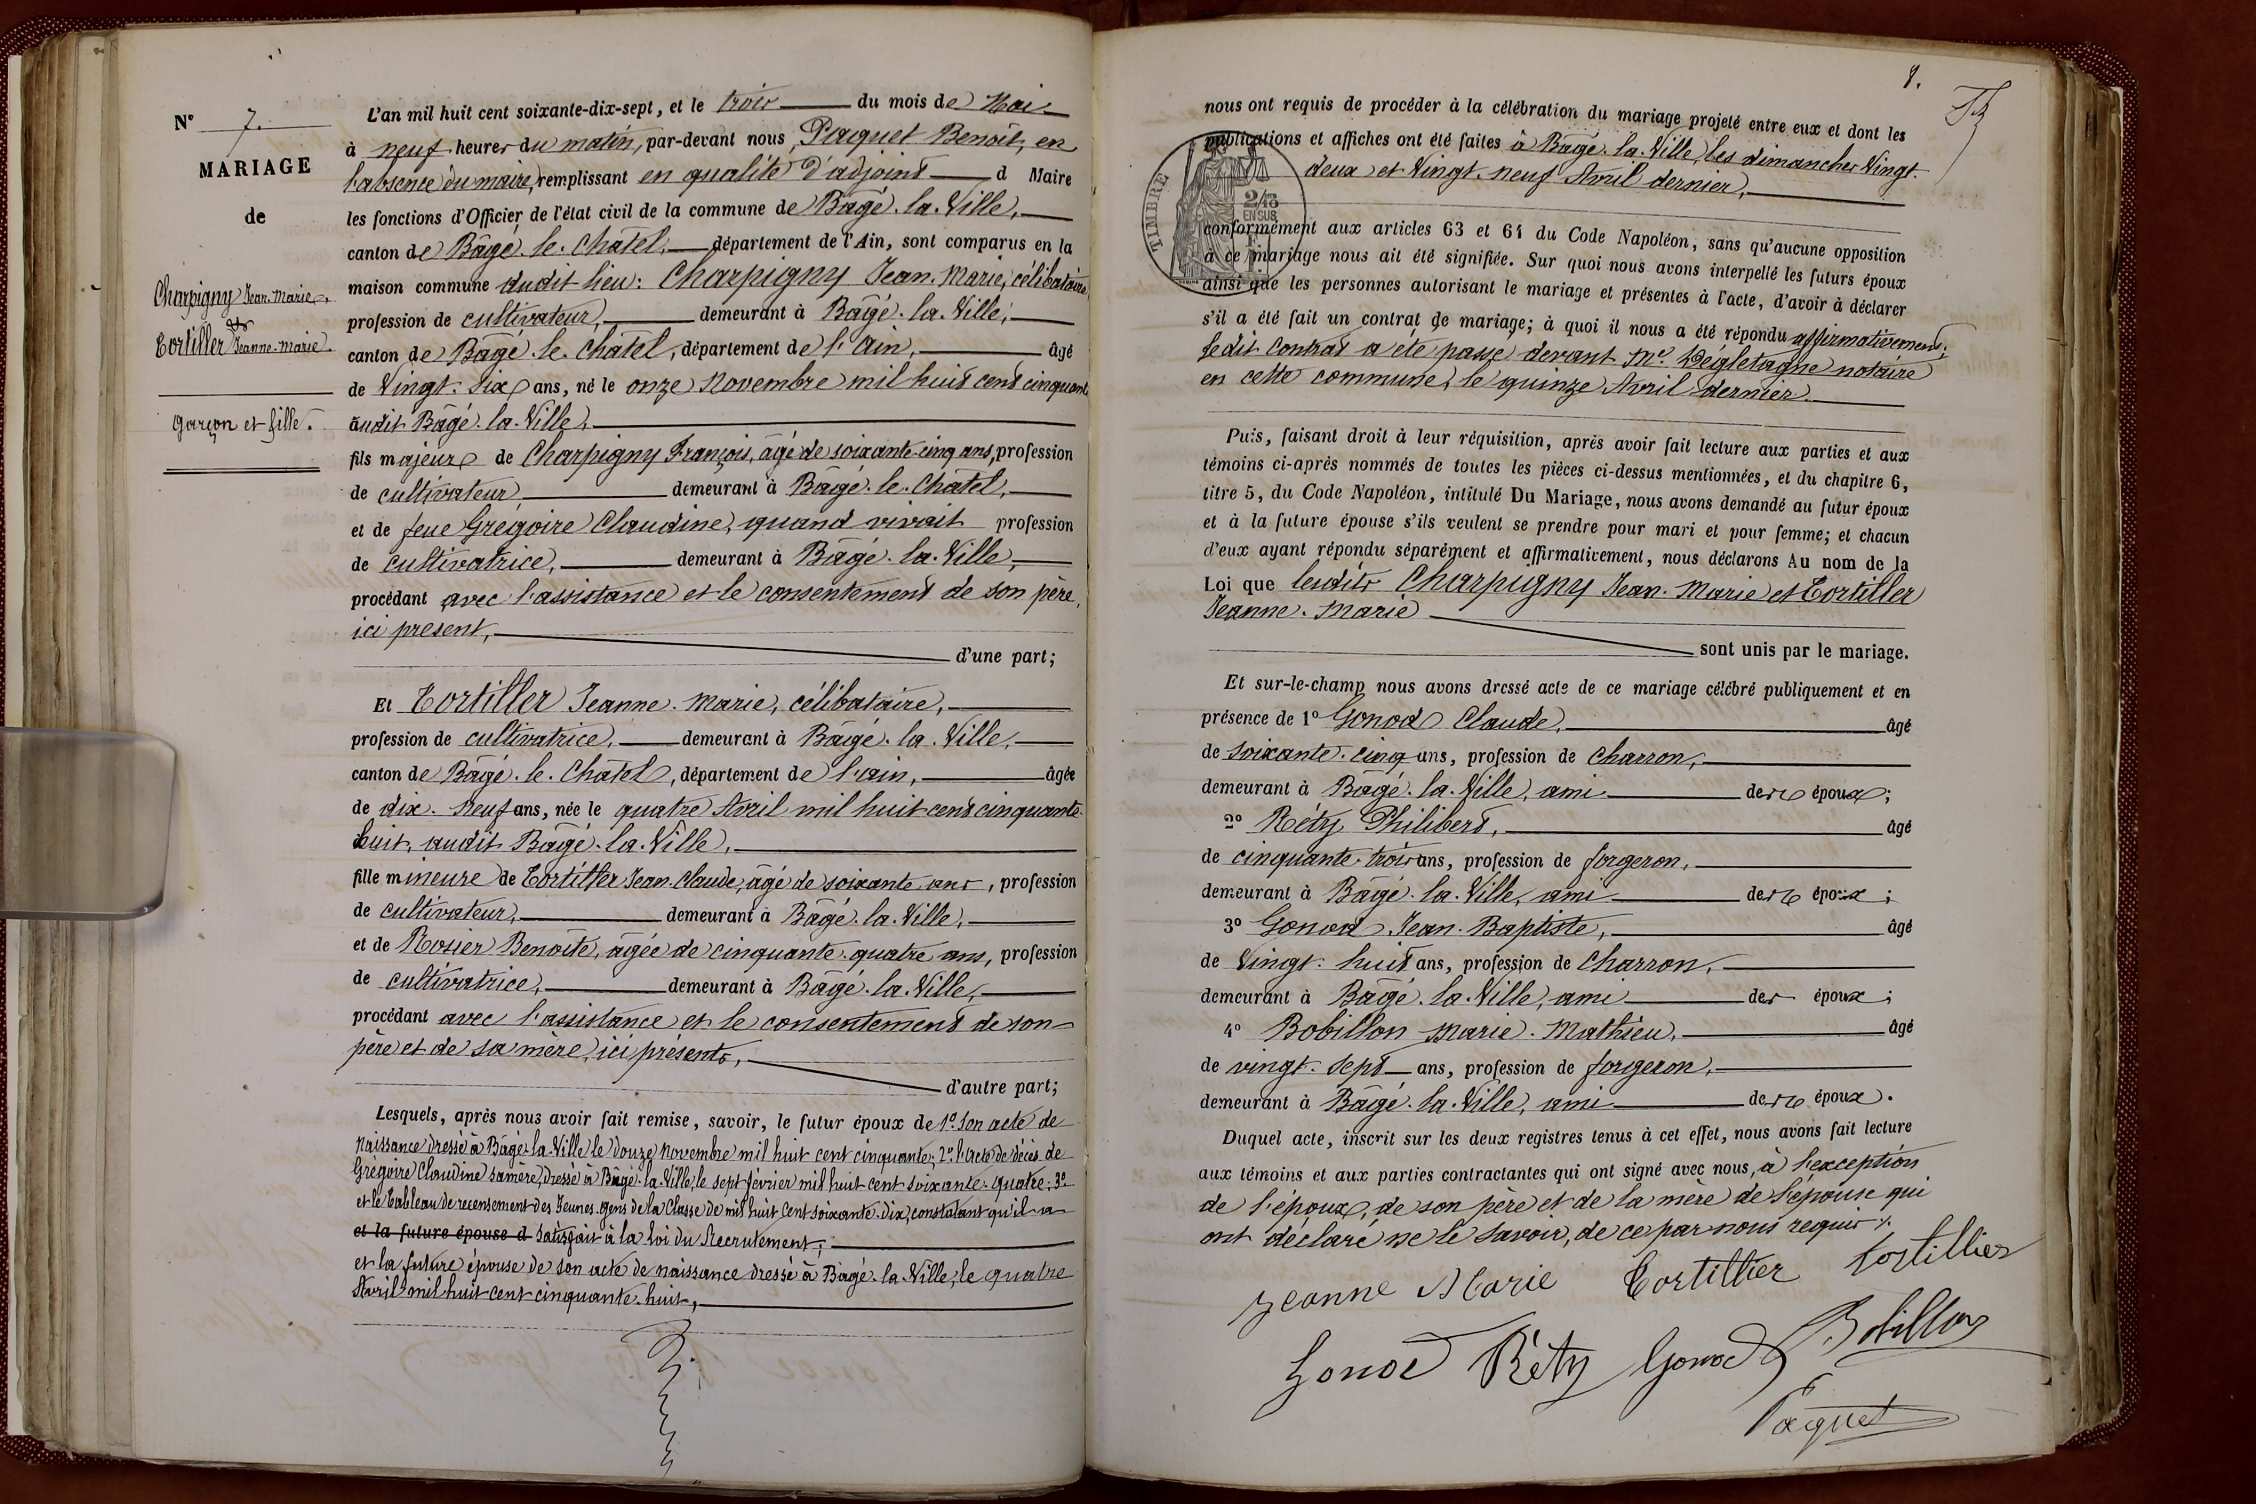 N° 7.
MARIAGE
de
Charpigny Jean-Marie,
et
Tortiller Jeanne-Marie.
Garçon et fille.
L'an mil huit cent soixante-dix-sept, et le trois du mois de Mai
à neuf heures du matin, par-devant nous, Paquet Benoît, en
l'absence du maire, remplissant en qualité d'adjoint d Maire
les fonctions d'Officier de l'état civil de la commune de Bâgé-la-Ville,
canton de Bâgé-le-Châtel, département de l'Ain, sont comparus en la
maison commune dudit lieu: Charpigny Jean-Marie, célibataire,
profession de cultivateur, demeurant à Bâgé-la-Ville,
canton de Bâgé-le-Châtel, département de l'Ain, âgé
de Vingt-six ans, né le onze Novembre mil huit cent cinquante
audit Bâgé-la-Ville,
fils majeur de Charpigny François, âgé de soixante-cinq ans, profession
de cultivateur demeurant à Bâgé-le-Châtel,
et de feue Grégoire Claudine, quand vivait profession
de cultivatrice, demeurant à Bâgé-la-Ville,
procédant avec l'assistance et le consentement de son père,
ici présent,
d'une part;
Et Tortiller Jeanne-Marie, célibataire,
profession de cultivatrice, demeurant à Bâgé-la-Ville,
canton de Bâgé-le-Châtel, département de l'ain, âgée
de dix-neuf ans, née le quatre Avril mil huit cent cinquante-
huit, audit Bâgé-la-Ville,
fille mineure de Tortiller Jean-Claude, âgé de soixante ans, profession
de cultivateur, demeurant à Bâgé-la-Ville,
et de Rosier Benoîte, âgée de cinquante-quatre ans, profession
de cultivatrice, demeurant à Bâgé-la-Ville,
procédant avec l'assistance et le consentement de son
père et de sa mère, ici présents,
d'autre part;
Lesquels, après nous avoir fait remise, savoir, le futur époux de 1° Son acte de
Naissance dressé à Bâgé-la-Ville le douze novembre mil huit cent cinquante; 2° l'acte de décès de
Grégoire Claudine sa mère, dressé à Bâgé-la-Ville, le sept février mil huit cent soixante-quatre; 3°
et le Tableau de recensement des Jeunes gens de la Classe de mil huit cent soixante-dix, constatant qu'il a
et la future épouse d satisfait à la Loi du Recrutement;
et la future épouse de son acte de naissance dressé à Bâgé-la-Ville, le quatre
Avril mil huit cent cinquante-huit,
8.
nous ont requis de procéder à la célébration du mariage projeté entre eux et dont les
publications et affiches ont été faites à Bâgé-la-Ville, les dimanches Vingt-
deux et Vingt-neuf Avril dernier,
TIMBRE
2/10
EN SUS
conformément aux articles 63 et 64 du Code Napoléon, sans qu'aucune opposition
à ce mariage nous ait été signifiée. Sur quoi nous avons interpellé les futurs époux
ainsi que les personnes autorisant le mariage et présentes à l'acte, d'avoir à déclarer
s'il a été fait un contrat de mariage; à quoi il nous a été répondu affirmativement;
ledit contrat a été passé devant Me. Dégletagne notaire
en cette commune, le quinze Avril dernier.
Puis, faisant droit à leur réquisition, après avoir fait lecture aux parties et aux
témoins ci-après nommés de toutes les pièces ci-dessus mentionnées, et du chapitre 6,
titre 5, du Code Napoléon, intitulé Du Mariage, nous avons demandé au futur époux
et à la future épouse s'ils veulent se prendre pour mari et pour femme; et chacun
d'eux ayant répondu séparément et affirmativement, nous déclarons Au nom de la
Loi que lesdits Charpigny Jean-Marie et Tortiller
Jeanne-Marie
sont unis par le mariage.
Et sur-le-champ nous avons dressé acte de ce mariage célébré publiquement et en
présence de 1° Gonod Claude, âgé
de soixante-cinq ans, profession de charron,
demeurant à Bâgé-la-Ville, ami des époux;
2° Réty Philibert, âgé
de cinquante-trois ans, profession de forgeron,
demeurant à Bâgé-la-Ville, ami des époux;
3° Gonod Jean-Baptiste, âgé
de Vingt-huit ans, profession de Charron,
demeurant à Bâgé-la-Ville, ami des époux;
4° Bobillon Marie-Mathieu, âgé
de vingt-sept ans, profession de forgeron,
demeurant à Bâgé-la-Ville, ami des époux.
Duquel acte, inscrit sur les deux registres tenus à cet effet, nous avons fait lecture
aux témoins et aux parties contractantes qui ont signé avec nous, à l'exception
de l'époux, de son père et de la mère de l'épouse qui
ont déclaré ne le savoir, de ce par nous requis.
Jeanne Marie Tortillier Tortillier
Gonod Réty Gonod Bobillon
Paquet